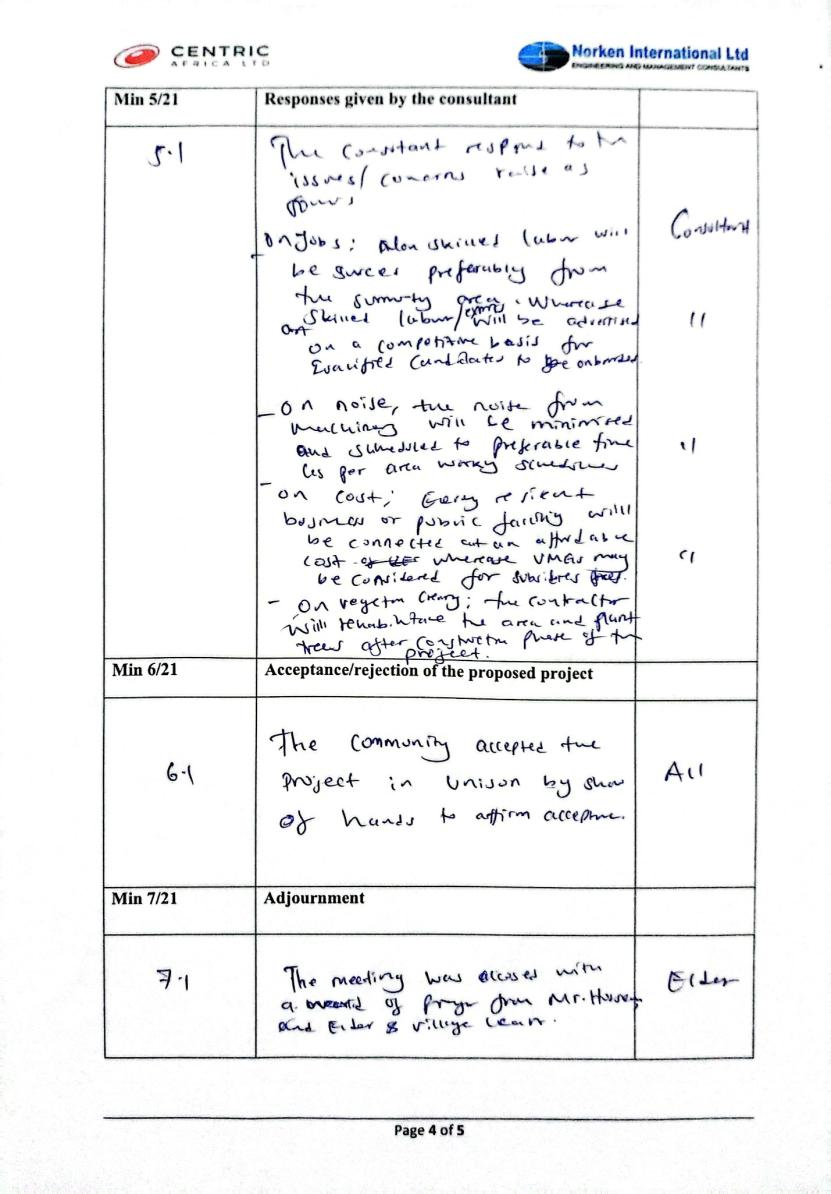 CENTRIC
AFRICA LTD
Norken International Ltd
ENGINEERING AND MANAGEMENT CONSULTANTS
Min 5/21 Responses given by the consultant
5.1 The consultant respond to the
issues/concerns raise as
Consultant
On Jobs: Non skilled labor will
be preferably from
the area. Whereas
skilled labour / will be advertised "
on a competitive basis for
candidates to be onboarded
- On noise, the noise from
will be minimised
and scheduled to preferable time "
as per area schedules
- On cost; Every resient
business or public facility will
be connected at an affordable
cost whereas VMGs may "
be considered for
- On vegetn ; the contractor
will the area and plant
trees after phase of the
project.
Min 6/21 Acceptance/rejection of the proposed project
6.1 The community accepted the All
project in unison by show
of hands to affirm
Min 7/21 Adjournment
7.1 The meeting was with Elder
a of from Mr.
and Elder & village
Page 4 of 5